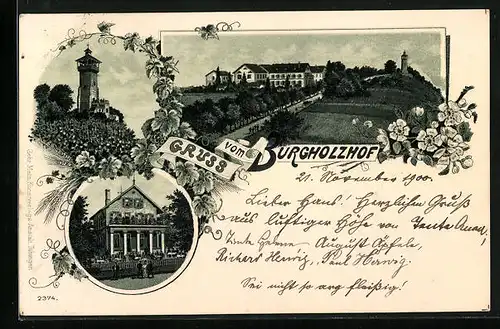 GRUSS vom BURGHOLZHOF
21. November 1900.
Lieber Hans! Herzlichen Gruß
aus luftiger Höhe von Tante Anna,
Tante August Apfele,
Richard Herwig, Paul Herwig.
Sei nicht so arg fleißig!
2374.